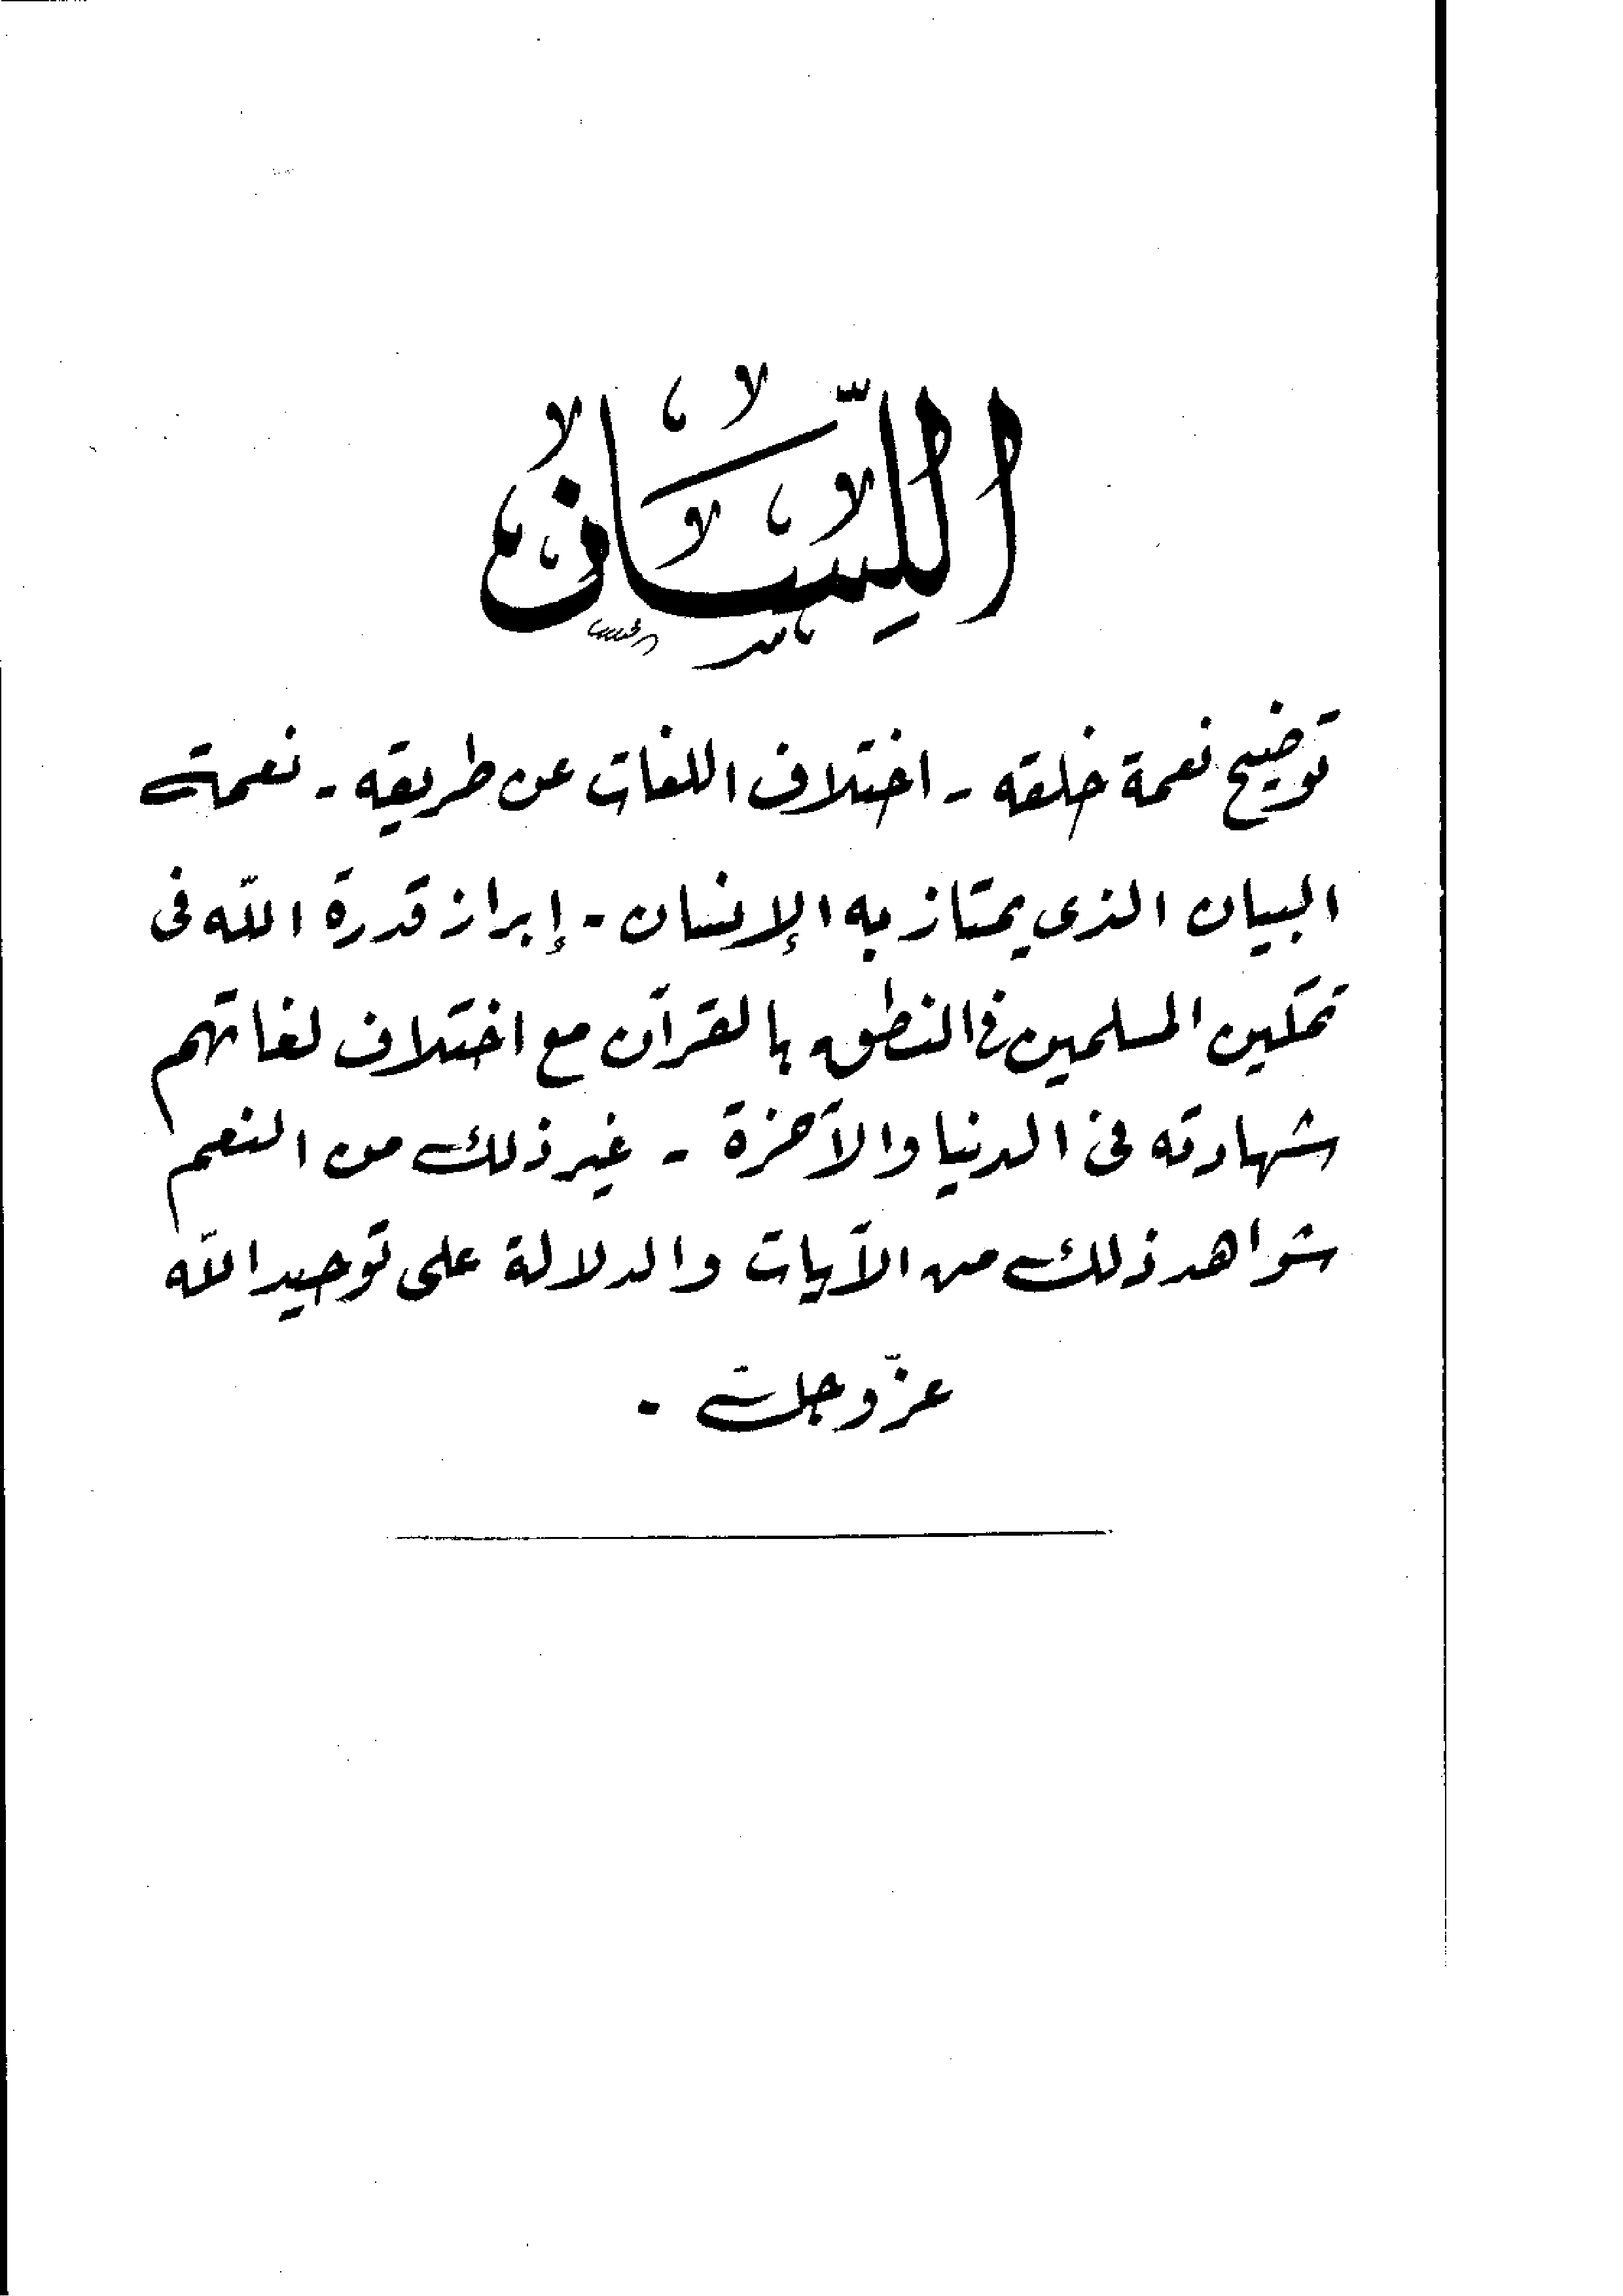 اللِّسَان
توضيح نعمة خلقه - اختلاف اللغات عن طريقه - نعمة
البيان الذى يمتاز به الإنسان - إبراز قدرة اللّه فى
تمكين المسلمين فى النطق بالقرآن مع اختلاف لغاتهم
شهادته فى الدنيا والآخرة - غير ذلك من النعم
شواهد ذلك من الآيات والدلالة على توحيد اللّه
عزّ وجلت .